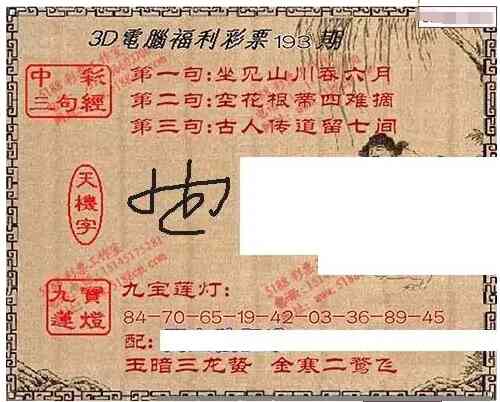 3D電腦福利彩票193期
中彩三句經
第一句:坐见山川春六月
第二句:空花根蒂四难摘
第三句:古人传道留七间
天機字
九寶蓮燈
九宝莲灯:
84-70-65-19-42-03-36-89-45
配:
玉暗三龙蛰 金寒二鹭飞